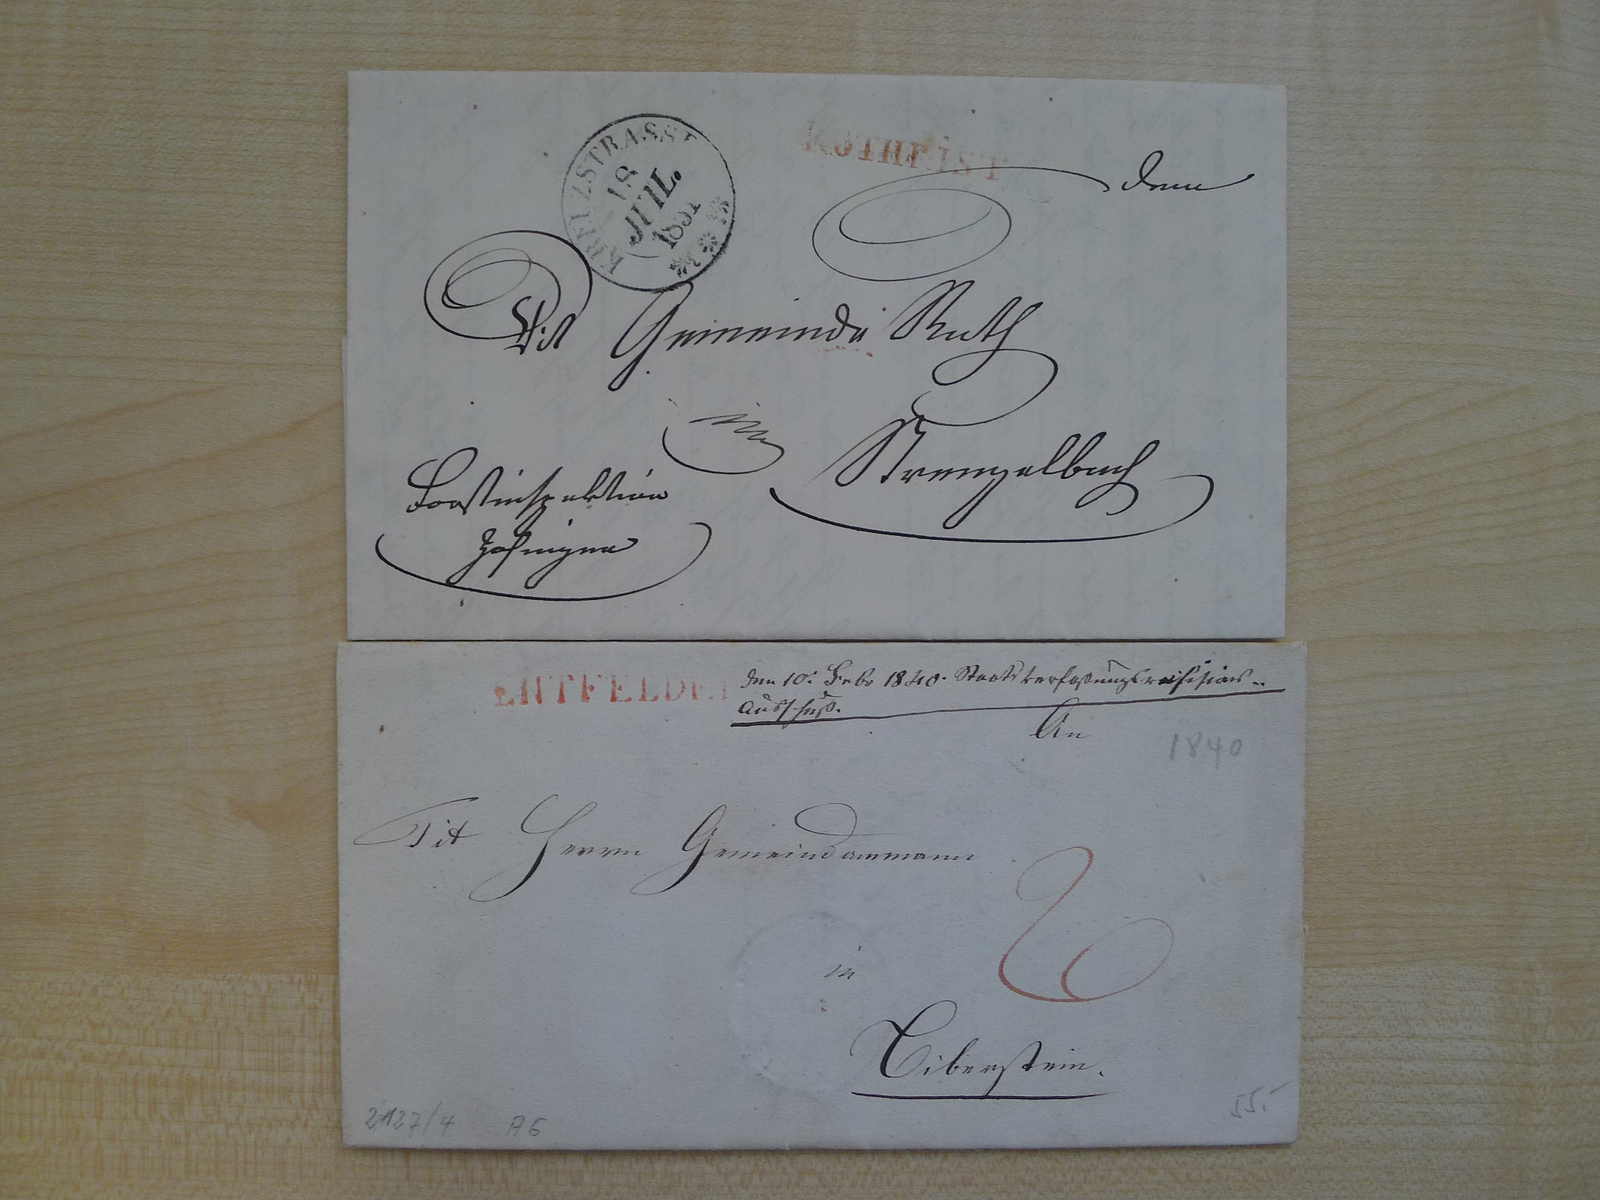 KREUZSTRASSE
18
JUIL.
ROTHRIST
dem
Tit Gemeinde Rath
in
Strengelbach
Forstinspektion
Zofingen
ENTFELDEN
den 10. Febr 1840. Staatsverfassungsrevisions-
Ausschuß.
An
1840
Tit Herrn Gemeindammann
2
in
Biberstein.
2127/4 A6
55.-